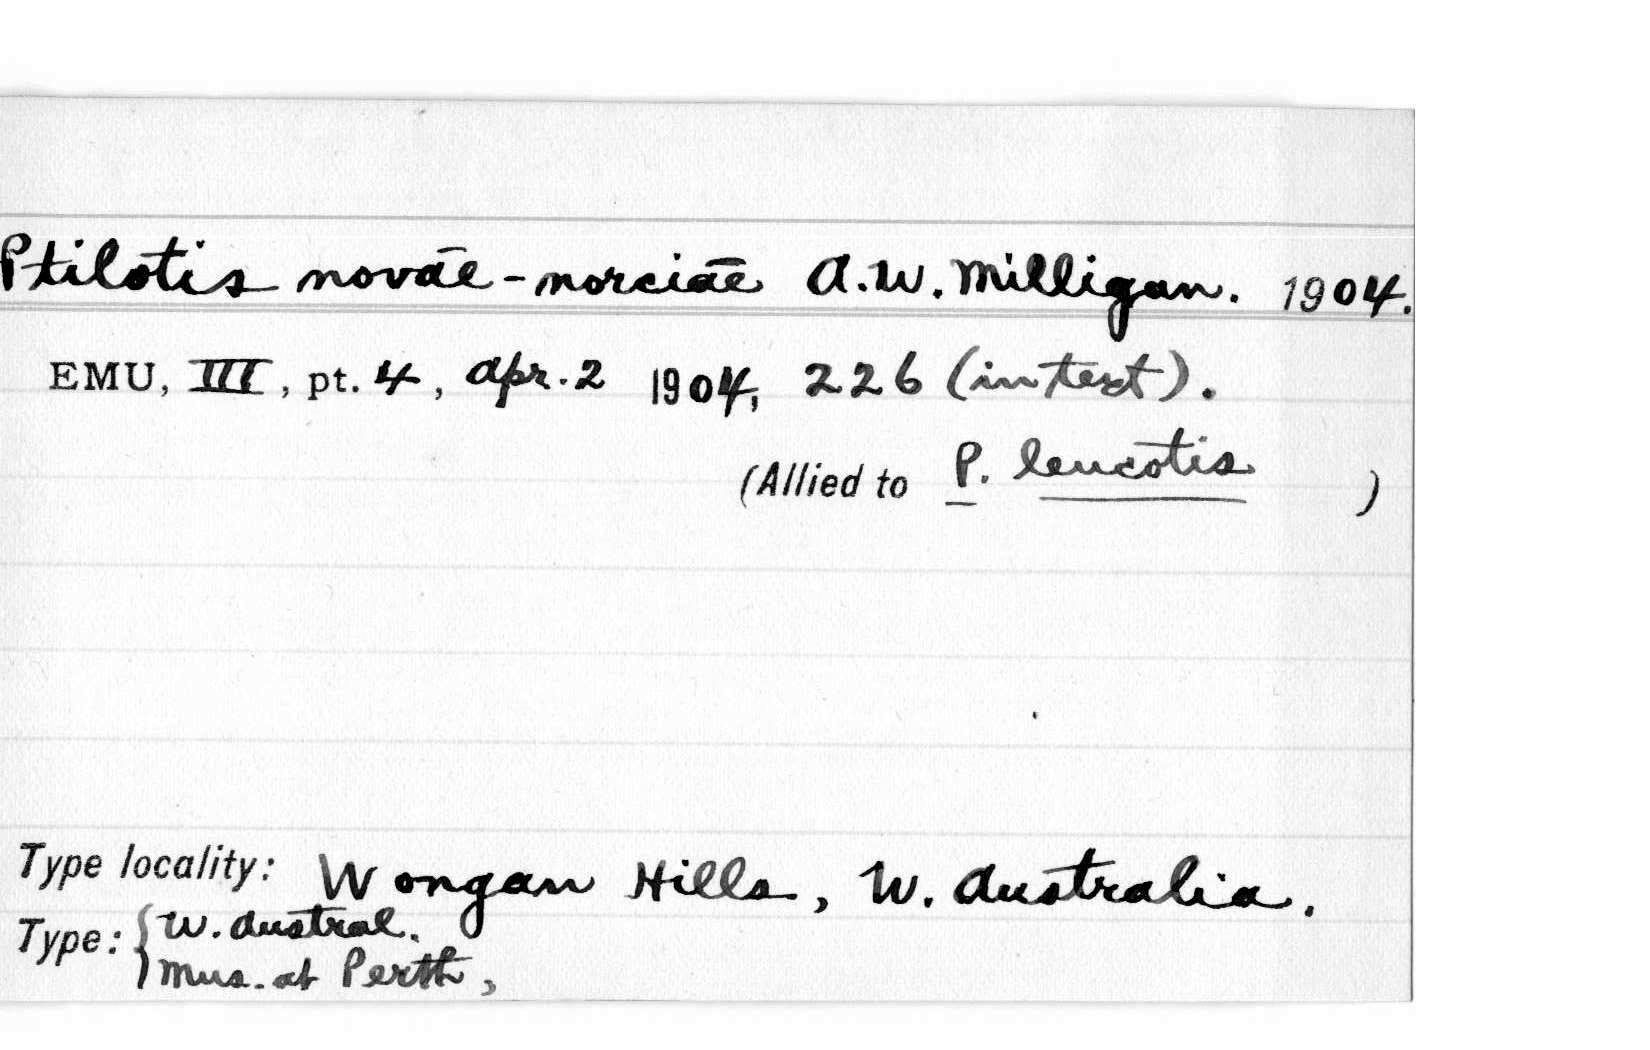 Ptilotis novae-norciae A.W. Milligan. 1904.
EMU, III, pt. 4, Apr. 2 1904, 226 (in text).
(Allied to P. leucotis )
Type locality: Wongan Hills, W. Australia.
Type: { W. Austral.
Mus. at Perth,